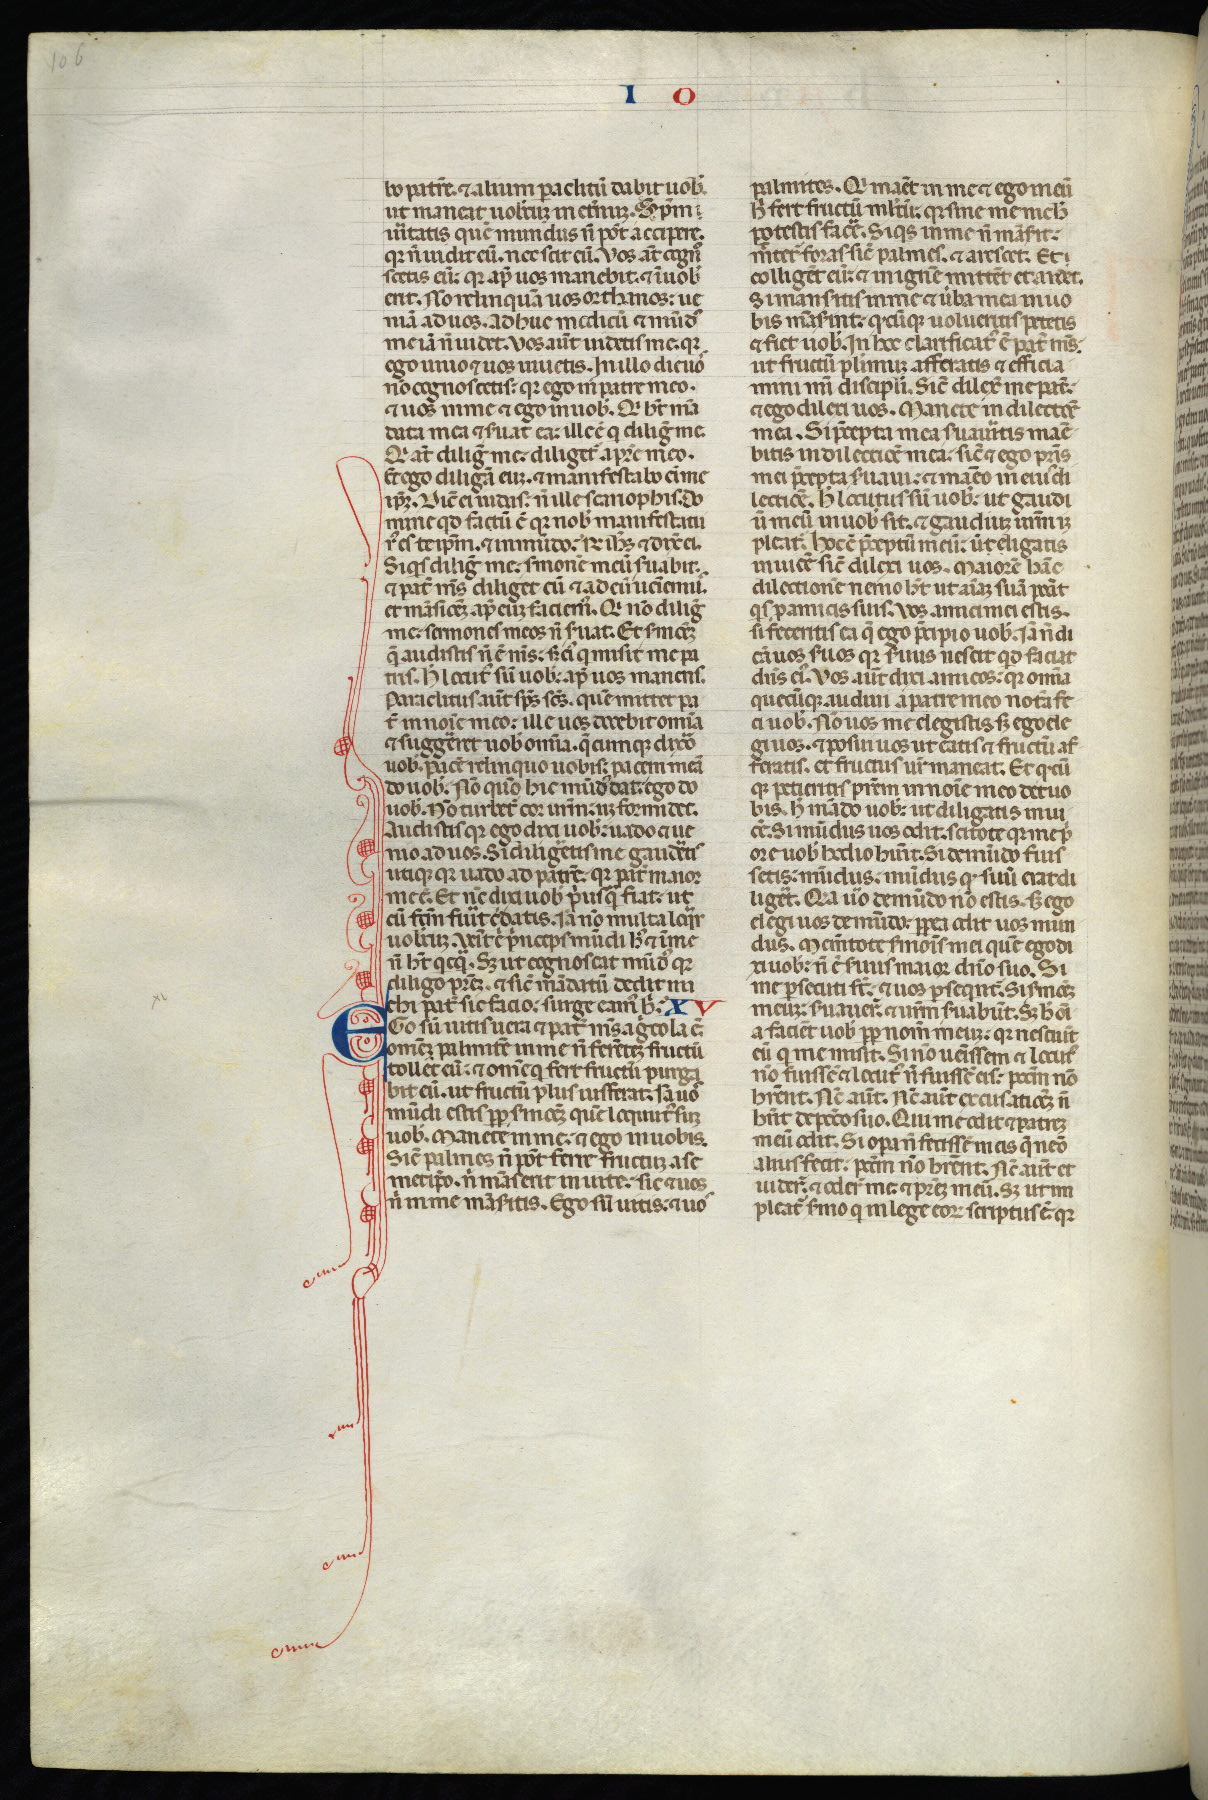 106
I O
bo patrē. ⁊ alium paclitū dabit uob̄.
ut maneat uobcuȝ in et̄nuȝ. Sp̄m
uitatis quē mundus n̄ pōt accipere.
qr n̄ uidit eū. nec scit eū. Vos aūt cogno
scetis eū: qr ap̄ uos manebit. ⁊ ī uob̄
erit. Nō relinquā uos orfhanos: ue
niā ad uos. Adhuc modicū ⁊ mūd᷒
me iā n̄ uidet. Vos aūt uidetis me. qr
ego uiuo ⁊ uos uiuetis. In illo die uo᷒
nō cognoscetis: qr ego in patre meo.
⁊ uos in me ⁊ ego in uob̄. Q̄ ht̄ mā
data mea ⁊ s̄uat ea: ille ē q̄ diliḡ me.
Q̄ aūt diliḡ me: diliget᷒ a pr̄e meo.
Et ego diligā eū. ⁊ manifestabo ei me
ip̄ȝ. Dic̄ ei iudas: n̄ ille scariophis. Do
mine qd factū ē qr nob̄ manifestatu
r᷒ es teip̄m. ⁊ in mūdo: R̄ ih̄s ⁊ dix̄ ei.
Siqs diliḡ me: s̄monē meū s̄uabit.
⁊ pat̄ m̄s diliget eū ⁊ ad eū ueniem᷒.
et māsioēȝ ap̄ eū faciem᷒. Q̄ nō diliḡ
me: sermones meos n̄ s̄uat. Et s̄moēȝ
q̄ audistis n̄ ē m̄s: s̄ ei᷒ q̄ misit me pa
tris. H̄ locut᷒ sū uob̄: ap̄ uos manens.
Paraclitus aūt sp̄s sc̄s. quē mittet pa
t̄ in noīe meo: ille uos docebit omīa
⁊ sugḡeret uob̄ omīa. q̄cumqȝ dixo᷒
uob̄. pacē relinquo uobis: pacem meā
do uob̄. Nō quo᷒ hic mūd᷒ dat: ego do
uob̄. Nō turbet᷒ cor ur̄m: nȝ formidet.
Audistis qr ego dixi uob̄: uado ⁊ ue
nio ad uos. Si diligetis me gaudetis
utiqȝ qr uado ad patrē: qr pat̄ maior
me ē. Et nūc dixi uob̄ p̄usq̄ fiat: ut
cū fcm̄ fu᷒it c᷒datis. Iā nō multa loq̄r
uobcuȝ. Venit ē p̄nceps mūdi h᷒ ⁊ ī me
n̄ ht̄ qcq̄. Sȝ ut cognoscat mūd᷒ qr
diligo pr̄eȝ. ⁊ sic̄ mādatū dedit mi
chi pat̄ sic facio: surge eam᷒ h̄. XV
EGo sū uitis uera ⁊ pat̄ m̄s agcola ē.
omēȝ palmitē in me n̄ ferētēȝ fructū
tollet eū: ⁊ omē q̄ fert fructū purga
bit eū. ut fructū plus afferat. Iā uo᷒
mūdi estis pp̄ s̄moēȝ quē locut᷒ suȝ
uob̄. Manete in me: ⁊ ego in uobis.
Sic̄ palmes n̄ pōt ferre fructuȝ a se
metip̄o. n̄ mās̄erit in uite: sic ⁊ uos
n̄ in me māsitis. Ego sū uitis: ⁊ uo᷒
palmites. Q̄ manēt in me ⁊ ego in eū
h̄ fert fructū mltū: qr sine me nich̄
potestis face᷒. Siqs in me n̄ māsit:
mittet᷒ foras sic̄ palmes. ⁊ arescet. Et
colligēt eū: ⁊ in ignē mittēt et ardet.
Si mansitis in me ⁊ ūba mea in uo
bis māsint: qdcūqȝ uolueritis petetis
⁊ fiet uob̄. In hoc clarificat᷒ ē pat̄ m̄s:
ut fructū plimuȝ afferatis ⁊ efficia
mini mī discipuli. Sic̄ dilex̄ me pat̄:
⁊ ego dilexi uos. Manete in dilectoē
mea. Si p̄cepta mea s̄uauitis mane
bitis in dilectioē mea: sic̄ ⁊ ego pr̄is
mei p̄cepta s̄uaui: ⁊ maneo in ei᷒ di
lectioē. H̄ locutus sū uob̄: ut gaudi
ū meū in uob̄ sit. ⁊ gaudiuȝ ur̄m iȝ
pleat᷒. Hoc ē p̄ceptū meū: ut diligatis
inuicē sic̄ dilexi uos. Maiorē hāc
dilectionē nemo ht̄ ut aīaȝ suā ponat
qs p amicis suis. Vos amici mei estis.
si feceritis ea q̄ ego p̄cipio uob̄. Iā n̄ di
cā uos s̄uos qr s̄uus nescit qd faciat
dn̄s ei᷒. Vos aūt dixi amicos: qr omīa
quecūqȝ audiui a patre meo nota fe
ci uob̄. Nō uos me elegistis s̄ ego ele
gi uos. ⁊ posui uos ut eatis ⁊ fructū af
f᷒eratis. et fructus ur̄ maneat. Et qdcū
qȝ petieritis pr̄em in noīe meo det uo
bis. H̄ mādo uob̄: ut diligatis inui
cē. Si mūdus uos odit. scitote qr me p̄
ore uob̄ hodio hūit. Si de mūdo fuis
setis: mūdus. mūdus qd suū erat di
liget᷒. Qia uo᷒ de mūdo nō estis. s̄ ego
elegi uos de mūdo: pp̄ea odit uos mun
dus. Memtote s̄monis mei quē ego di
xi uob̄: n̄ ē s̄uus maior dn̄o suo. Si
me p̄secuti st̄: ⁊ uos p̄sequēt᷒. Si s̄moēȝ
meuȝ s̄uauer̄. ⁊ ur̄m s̄uabūt. Sȝ h̄ oī
a faciēt uob̄ pp̄ nom̄ meuȝ: qr nesciūt
eū q̄ me misit. Si nō uenissem ⁊ locut᷒
nō fuissē ⁊ locut᷒ n̄ fuissē eis: pctm̄ nō
hr̄ent. Nc̄ aūt. Nc̄ aūt excusatioēȝ n̄
hn̄t de pctō suo. Qui me odit ⁊ patreȝ
meū odit. Si op̄a n̄ fecissē in eis q̄ nemo
alius fecit: pctm̄ nō hr̄ent. Nc̄ aūt et
uider̄. ⁊ oder̄ me: ⁊ pr̄eȝ meū. Sȝ ut im
pleat᷒ s̄mo q̄ in lege eoȝ scriptus ē: qr